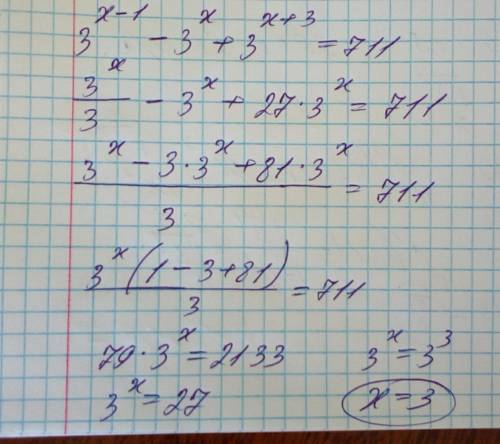 3^(x-1) - 3^x + 3^(x+3) = 711
3^x/3 - 3^x + 27·3^x = 711
(3^x - 3·3^x + 81·3^x)/3 = 711
3^x(1 - 3 + 81)/3 = 711
79·3^x = 2133
3^x = 27
3^x = 3^3
x = 3